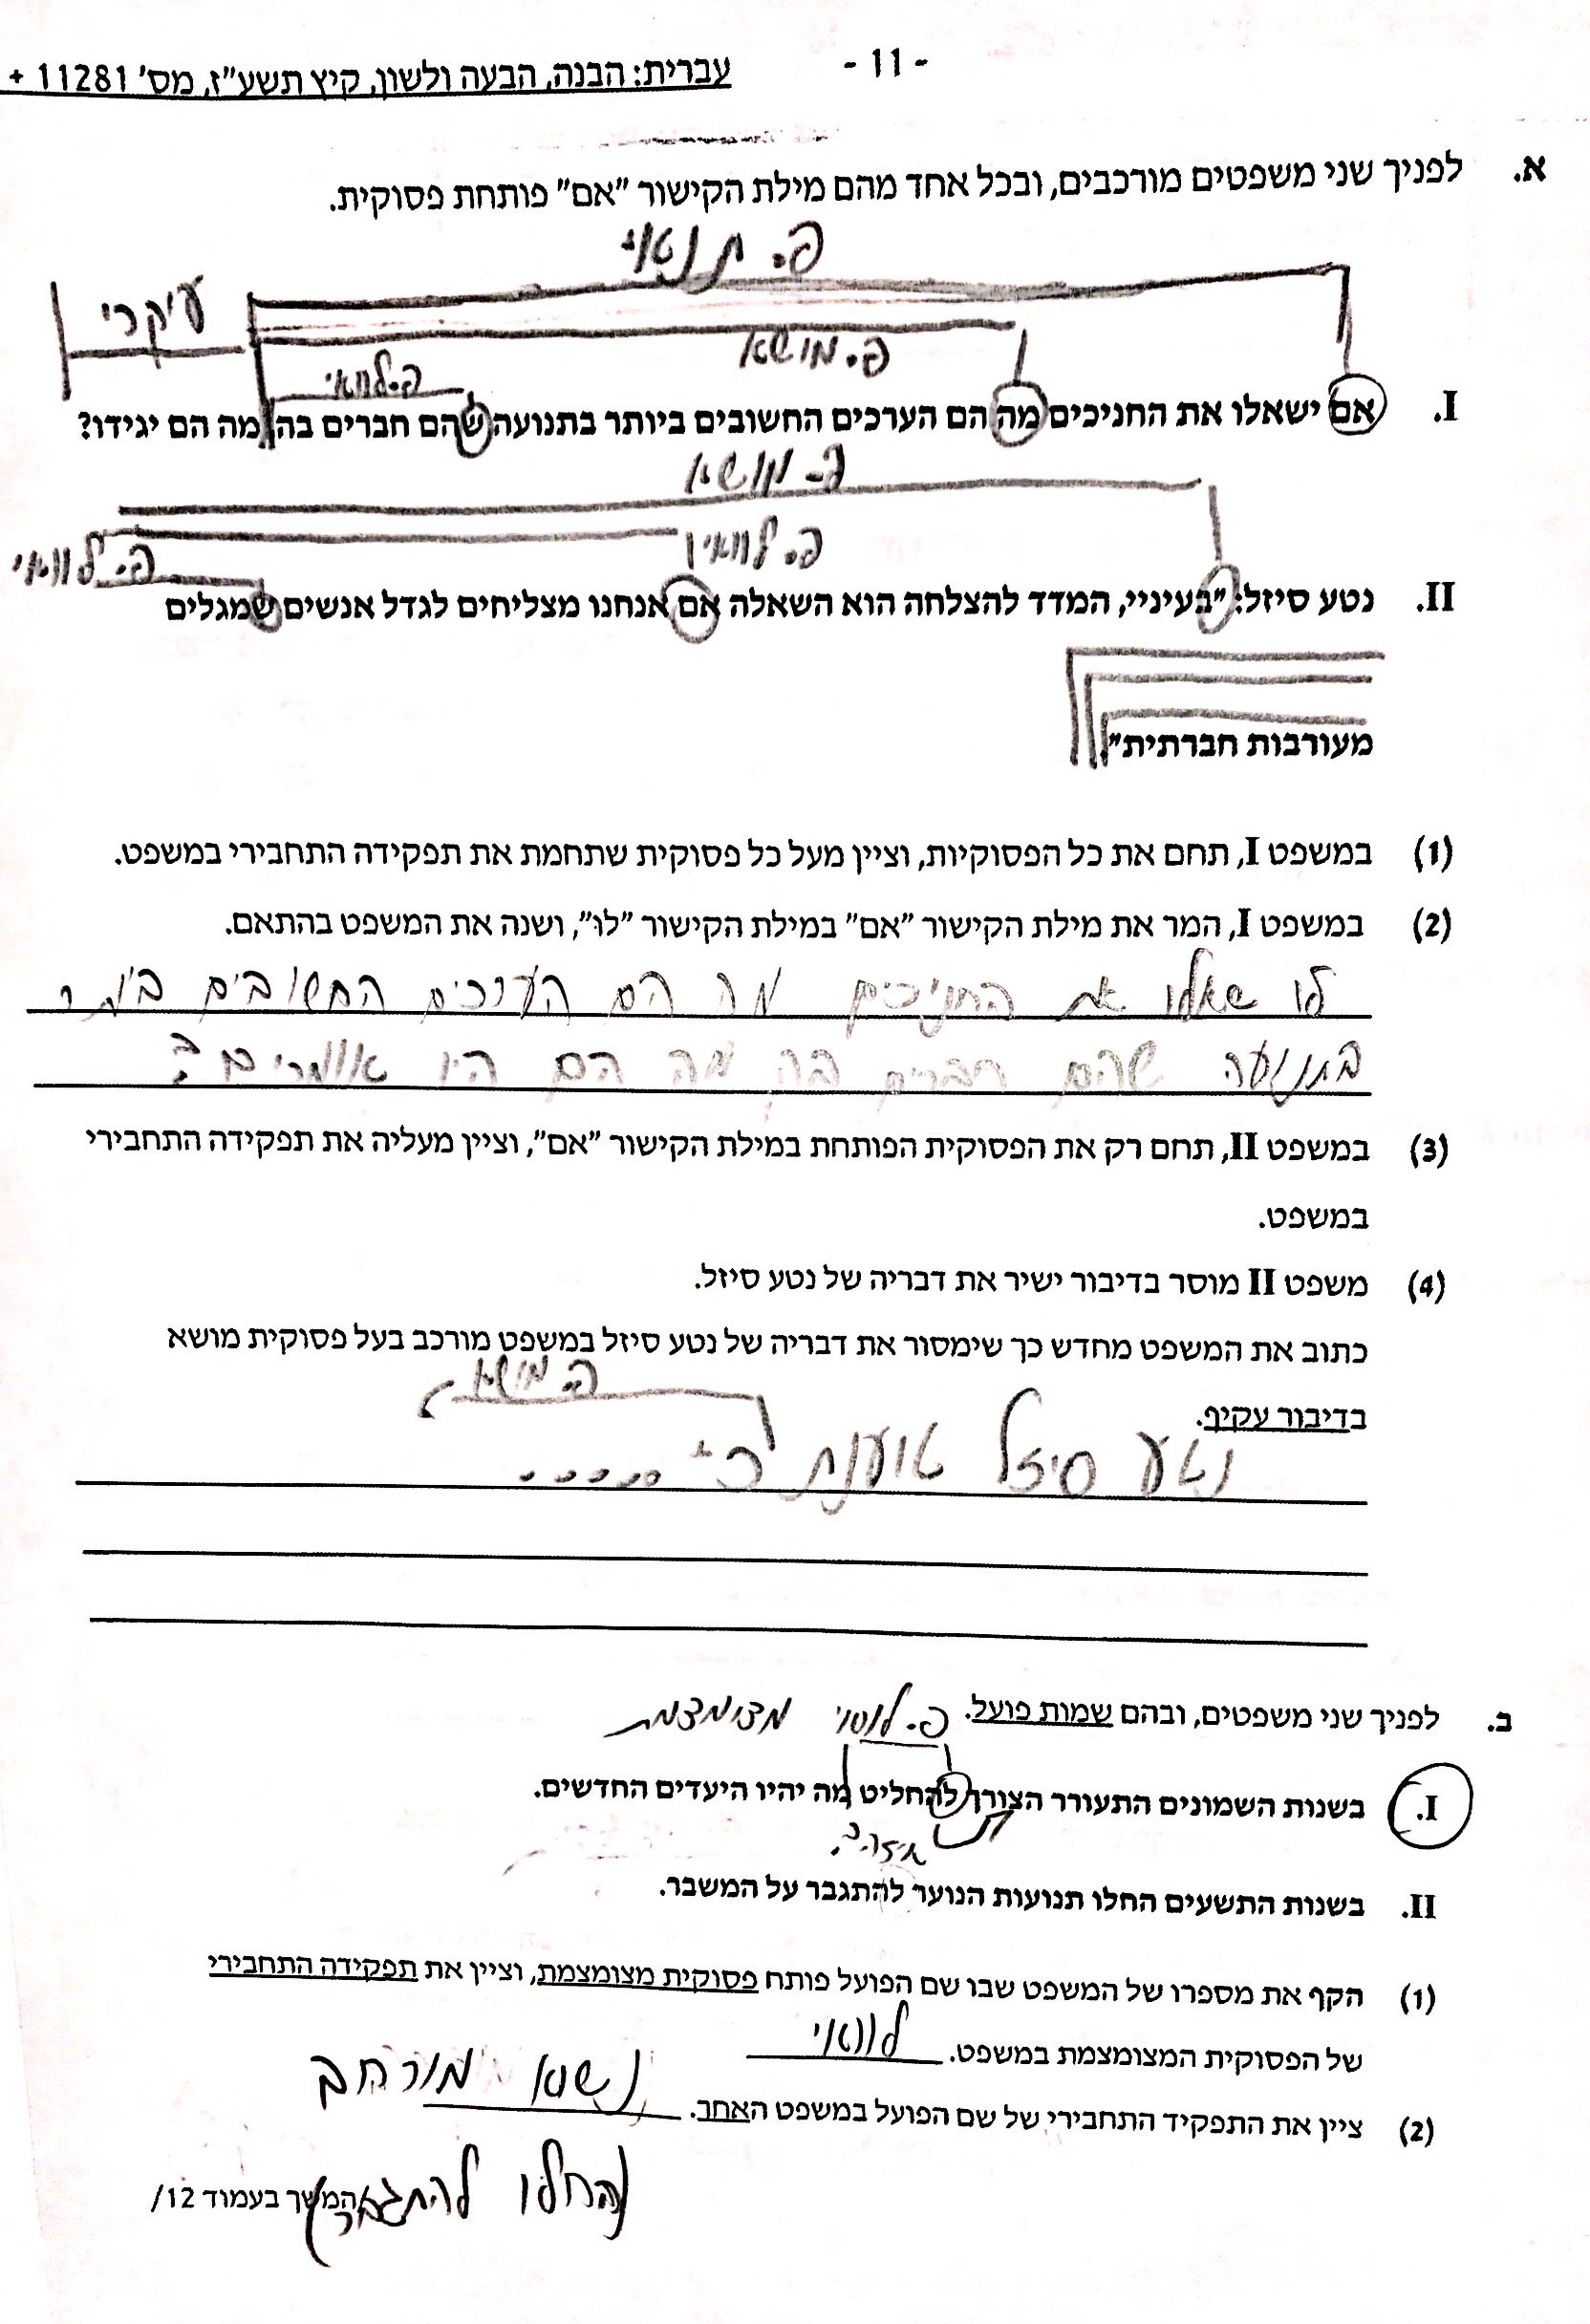 - 11 -
עברית: הבנה, הבעה ולשון, קיץ תשע"ז, מס' 11281 +
א. לפניך שני משפטים מורכבים, ובכל אחד מהם מילת הקישור "אם" פותחת פסוקית.
פ. תנאי
עיקרי
פ. מושא
פ. לוואי
I. אם ישאלו את החניכים מה הם הערכים החשובים ביותר בתנועה שהם חברים בה מה הם יגידו?
פ. מושא
פ. לוואי
פ. לוואי
II. נטע סיזל: "בעיניי, המדד להצלחה הוא השאלה אם אנחנו מצליחים לגדל אנשים שמגלים
מעורבות חברתית".
(1) במשפט I, תחם את כל הפסוקיות, וציין מעל כל פסוקית שתחמת את תפקידה התחבירי במשפט.
(2) במשפט I, המר את מילת הקישור "אם" במילת הקישור "לוּ", ושנה את המשפט בהתאם.
לו שאלו את החניכים מה הם הערכים החשובים ביותר
בתנועה שהם חברים בה מה הם היו אומרים?
(3) במשפט II, תחם רק את הפסוקית הפותחת במילת הקישור "אם", וציין מעליה את תפקידה התחבירי
במשפט.
(4) משפט II מוסר בדיבור ישיר את דבריה של נטע סיזל.
כתוב את המשפט מחדש כך שימסור את דבריה של נטע סיזל במשפט מורכב בעל פסוקית מושא
פ. מושא
בדיבור עקיף.
נטע סיזל טוענת כי .....
ב. לפניך שני משפטים, ובהם שמות פועל.
פ. לוואי מצומצמת
I. בשנות השמונים התעורר הצורך להחליט מה יהיו היעדים החדשים.
איזה?
II. בשנות התשעים החלו תנועות הנוער להתגבר על המשבר.
(1) הקף את מספרו של המשפט שבו שם הפועל פותח פסוקית מצומצמת, וציין את תפקידה התחבירי
של הפסוקית המצומצמת במשפט. לוואי
(2) ציין את התפקיד התחבירי של שם הפועל במשפט האחר. נשוא מורחב
(החלו להתגבר)
/המשך בעמוד 12/